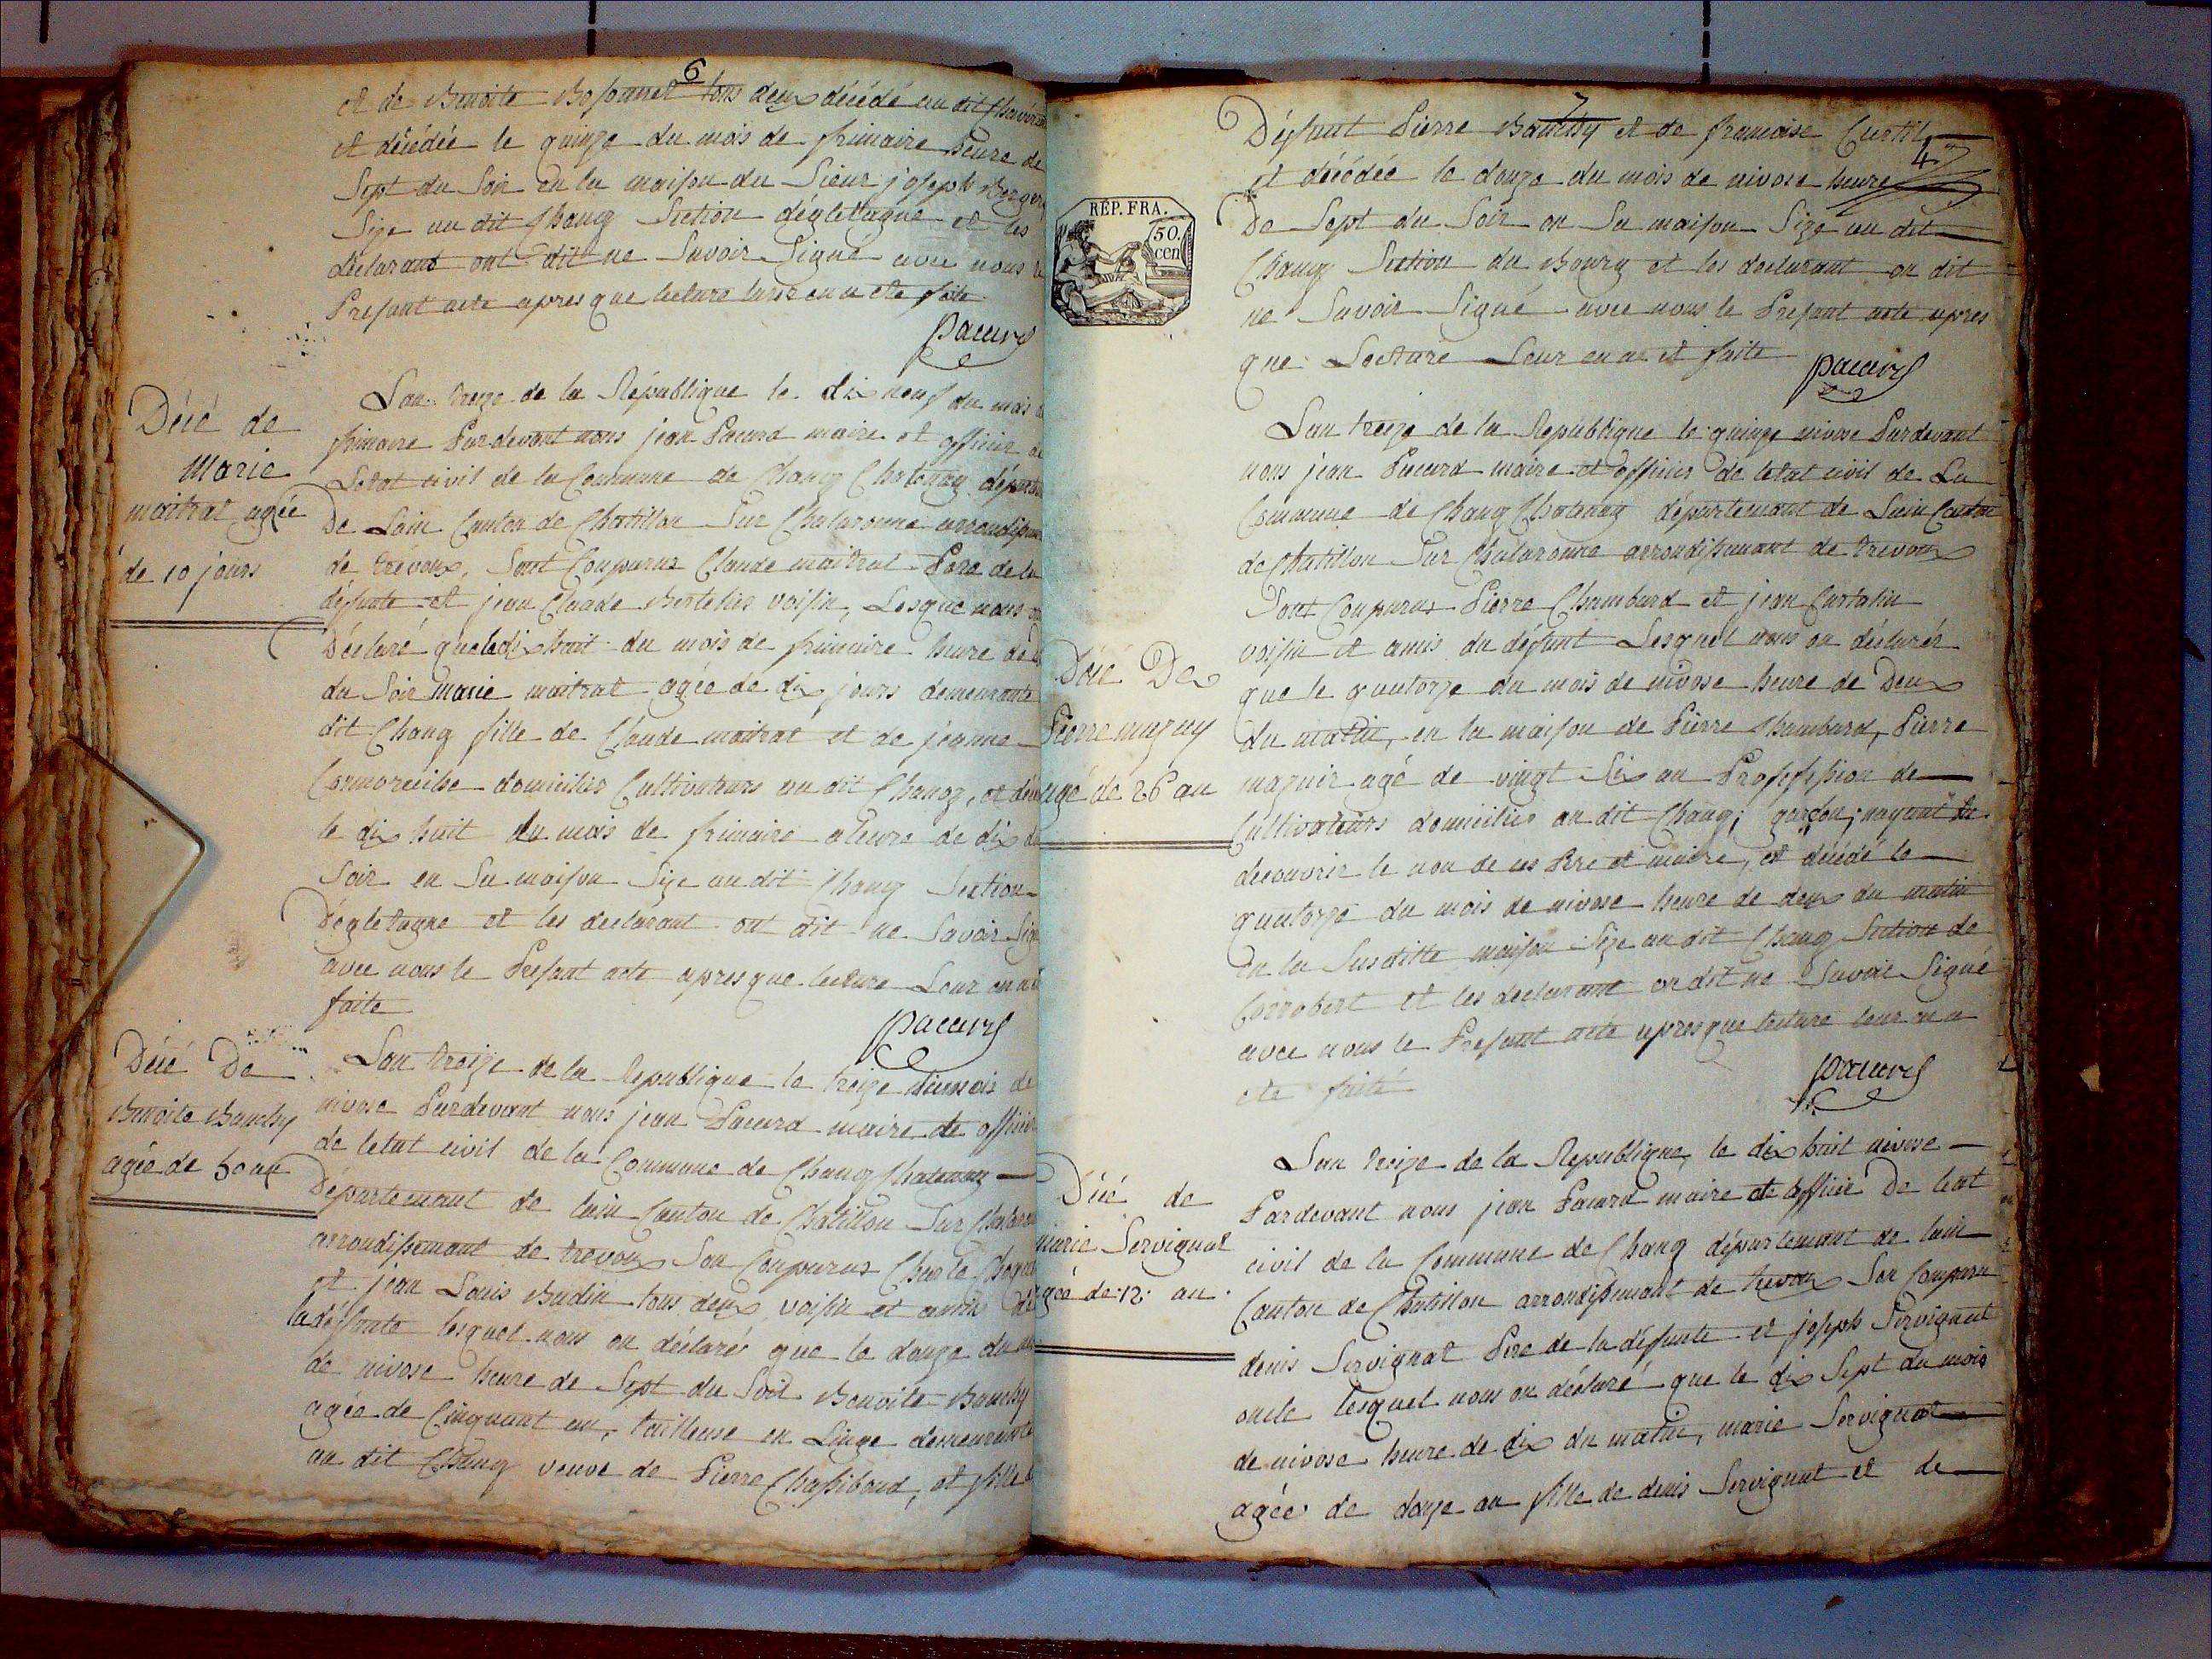 6
et de Benoite Bossanet tous deux décédé au dit
et décédée le quinze du mois de frimaire heure de
Sept du Soir en la maison du Sieur joseph Berger
Size au dit Chanoz Section dégletagne et les
déclarant ont dit ne Savoir Signé avec nous le
Present acte apres que lecture leur en a ete faite
Pacard
Déié de
Marie
maitrat agée
de 10 jours
Lan treize de la République le dix neuf du mois
frimaire Pardevant nous jean Pacard maire et officier de
Letat civil de la Commune de Chanoz Chatenay
De Lain Canton de Chatillon Sur Chalaronne
de trévoux, Sont Comparus Claude maitrat Pere de la
défunte et jean Claude Bertelier voisin, Lesque nous
Déclaré que le dix huit du mois de frimaire heure de
du Soir marie maitrat agée de dix jours demeurante
dit Chanoz fille de Claude maitrat et de jeanne
domicilies Cultivateurs au dit Chanoz, et
le dix huit du mois de frimaire a leure de dix du
Soir en Sa maison Size au dit Chanoz Section
Dégletagne et les declarant ont dit ne Savoir
avec nous le Present acte apres que lecture Leur en a
faite
Pacard
Déié De
Benoite Banchy
agée de 50 an
Lan treize de la Republique le treize du mois de
nivose Pardevant nous jean Pacard maire et officier
de letat civil de la Commune de Chanoz Chatenay
Département de Lain Canton de Chatillon Sur
arrondissemant de trevoux Son Comparus
et jean Louis Budin tous deux voisin et amis
la défunte lesquel nous on déclarés que le douze du
de nivose heure de Sept du Soir Benoite Banchy
agée de Cinquant an, tailleuse en Linge demeurente
au dit Chanoz veuve de Pierre Chassiboud, et fille
7
47
Défunt Pierre Banchy et de francoise Curtil
et décédée le douze du mois de nivose heure
RÉP. FRA.
50.
cen
De Sept du Soir en Sa maison Size au dit
Chanoz Section du Bourg et les declarant on dit
ne Savoir Signé avec nous le Present acte apres
que Lecture Leur en a et faite
Pacard
Lan treize de la Republique le quinze nivose Pardevant
nous jean Pacard maire et officier de letat civil de La
Commune de Chanoz Chatenay département de Lain Canton
de Chatillon Sur Chalaronne arrondissemant de trevoux
Sont Comparus Pierre Chambard et jean
voisin et amis du défunt Lesquel nous on déclarér
que le quatorze du mois de nivose heure de Deux
du matin, en la maison de Pierre Chambard, Pierre
mazuir agé de vingt Six an Profession de
Cultivateurs domicilié au dit Chanoz; garçon; nayant
decouvrir le non de ces Pere et maire, et décédé le
quatorze du mois de nivose heure de deux du matin
en la Susditte maison Size au dit Chanoz Section de
Corrobert et les declarant on dit ne Savoir Signé
avec nous le Present acte apres que lecture leur en a
ete faite
Pacard
Déié De
Pierre mazuy
agé de 26 an
Déié de
marie Servignat
agée de 12 an
Lan treize de la Republique, le dix huit nivose
Pardevant nous jean Pacard maire et officié De letat
civil de la Commune de Chanoz département de lain
Canton de Chatillon arrondissemant de trevoux Son Comparu
denis Servignat Pere de la défunte et joseph Servignat
oncle lesquel nous on déclaré que le dix Sept du mois
de nivose heure de dix du matin, marie Servignat
agée de douze an fille de denis Servignat et de